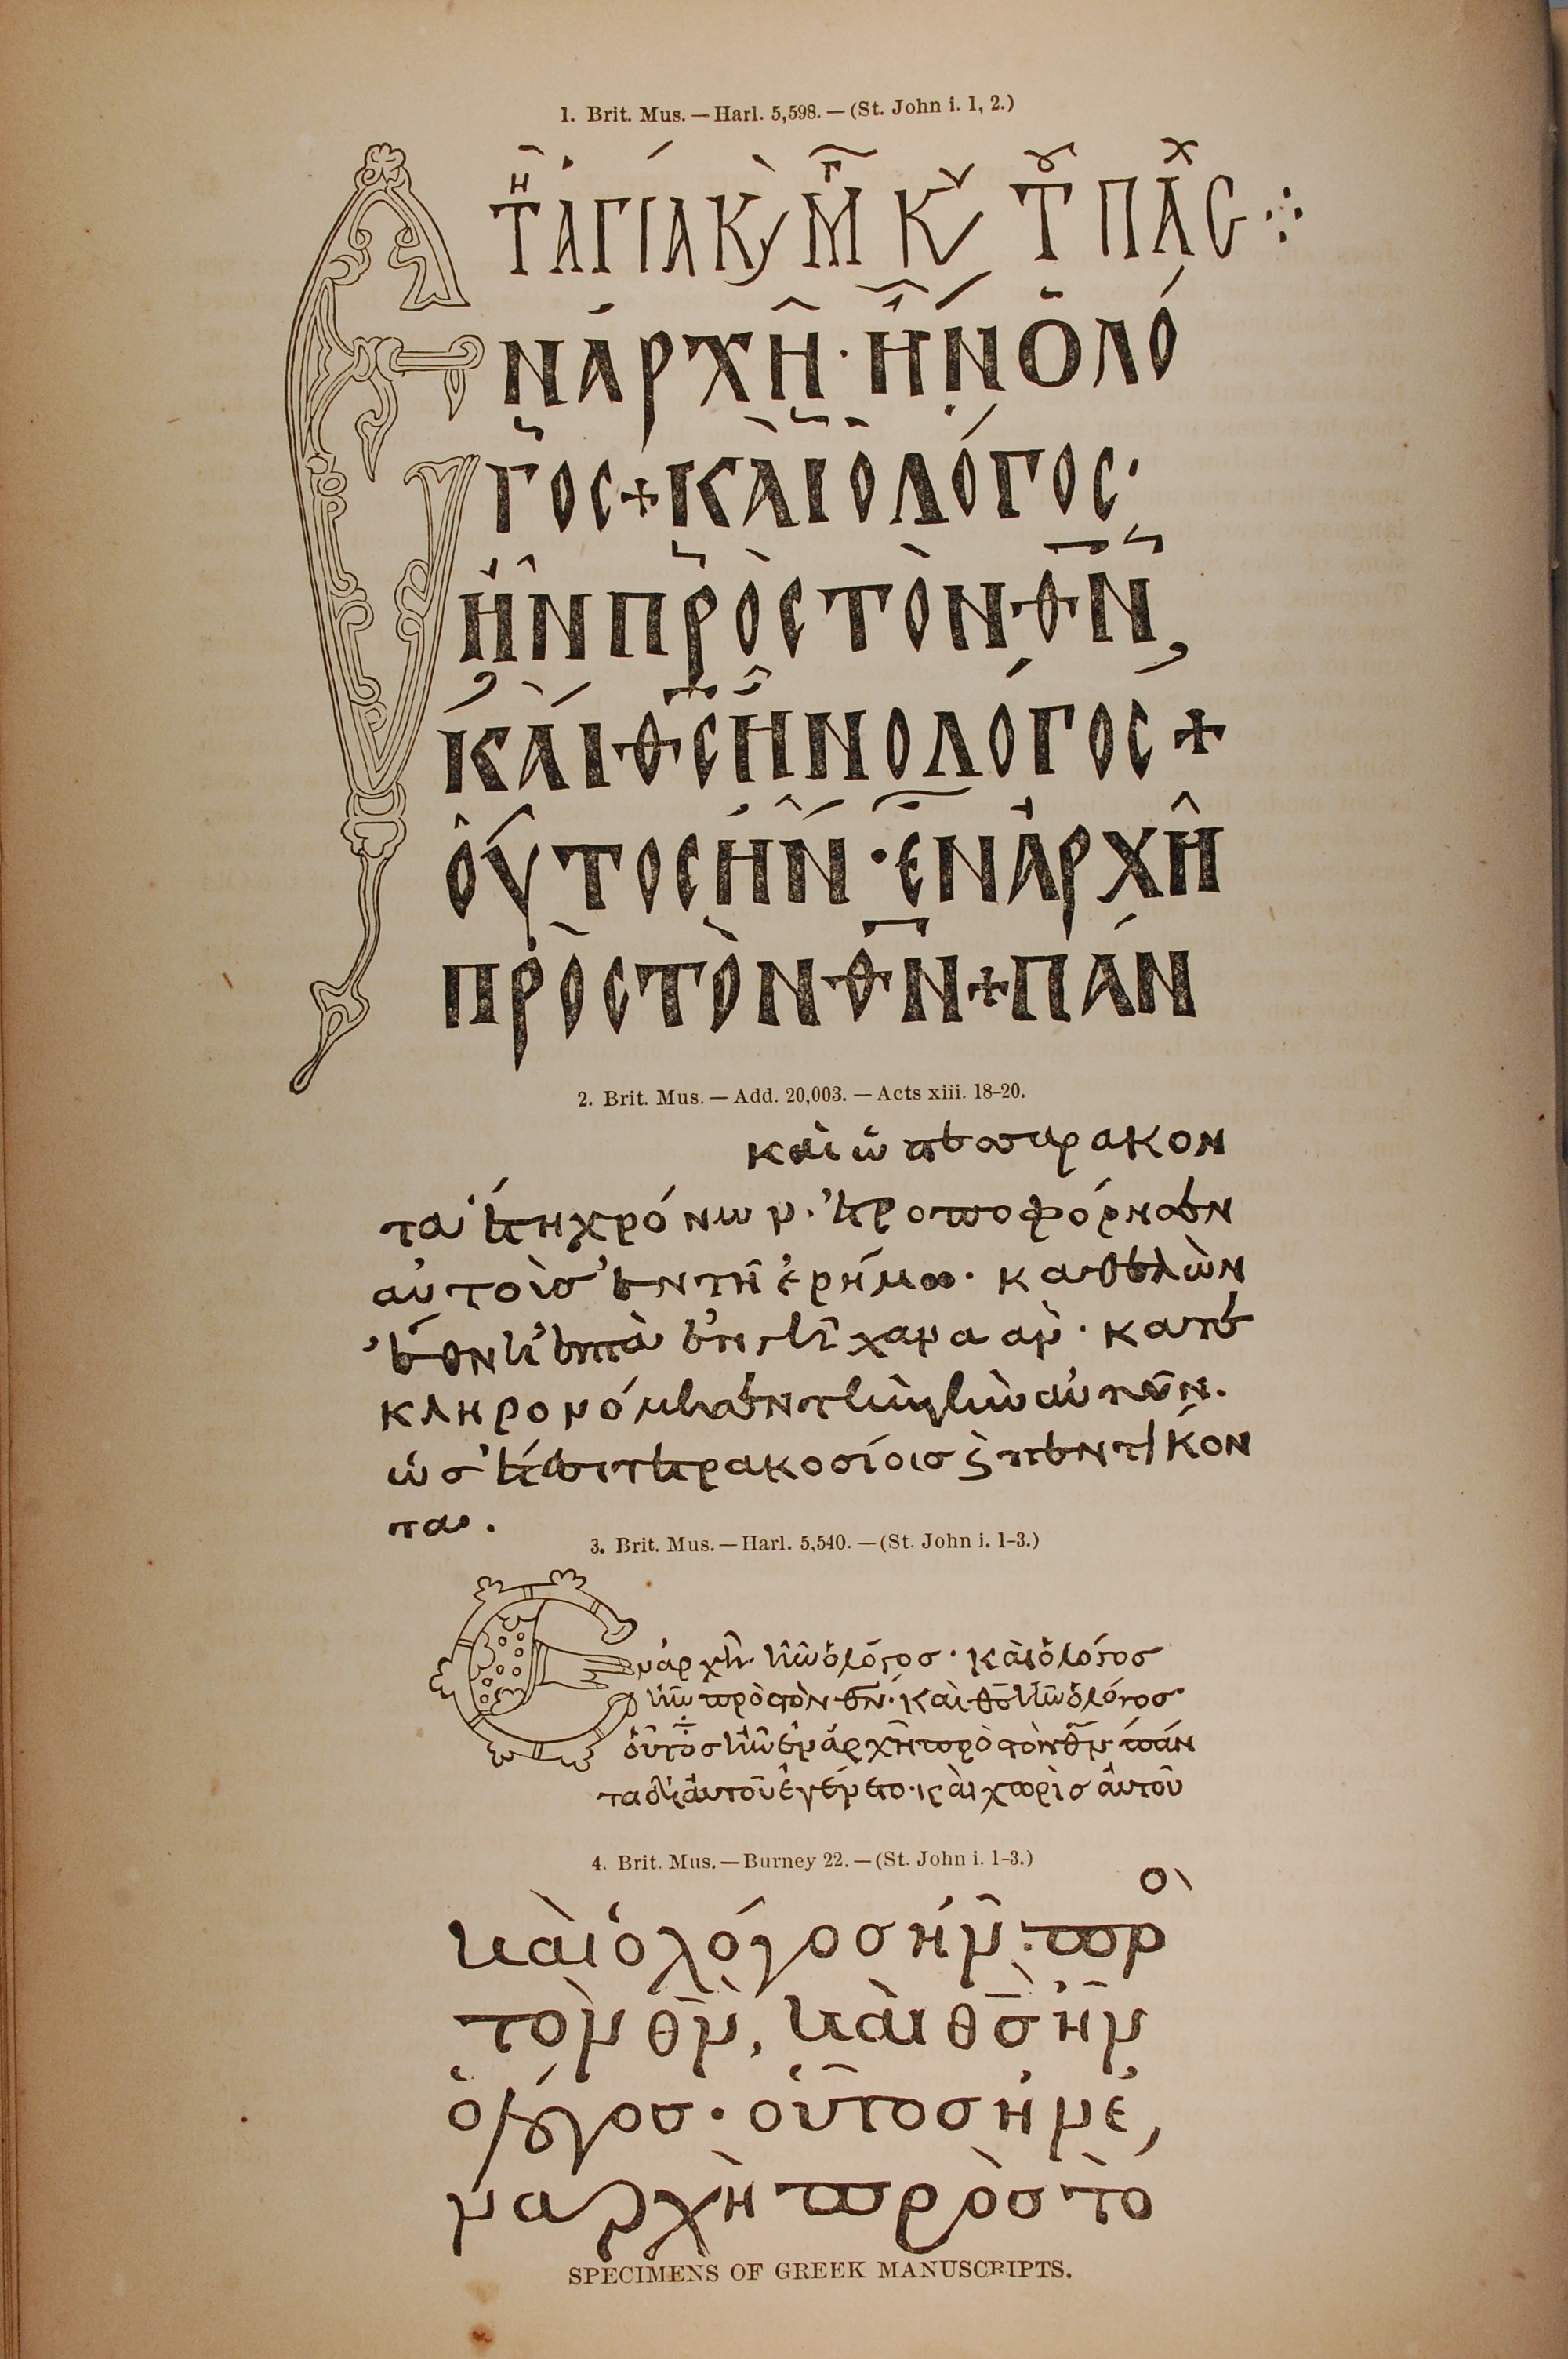 1. Brit. Mus. — Harl. 5,598. — (St. John i. 1, 2.)
ΤΗ ἉΓΙΑ Κ, Μ Κ, Τ ΠΑΣΧ
ΝἈΡΧΗ͂· ἮΝ Ὁ ΛΌ
ΓΟC + ΚΑῚ Ὁ ΛΌΓΟC·
ἮΝ ΠΡῸC ΤῸΝ Θ̅Ν̅,
ΚΑῚ Θ̅C̅ ἮΝ Ὁ ΛΌΓΟC +
ΟὟΤΟC ἮΝ · ἘΝ ἈΡΧΗ͂
ΠΡῸC ΤῸΝ Θ̅Ν̅ + ΠΆΝ
2. Brit. Mus. — Add. 20,003. — Acts xiii. 18-20.
καὶ ὡσ τεσσερακον
τα ἔτη χρόνων. ἐτροποφόρησεν
αὐτοὺσ ἐν τῆ ἐρήμω. καθελὼν
ἔθνη ἑπτὰ ἐν γῆ χανααν. κατε
κληρονόμησεν τὴν γὴν αὐτῶν.
ὡσ ἔτεσι τετρακοσίοισ ϗ πεντήκον
τα.
3. Brit. Mus. — Harl. 5,540. — (St. John i. 1-3.)
Ἐν ἀρχῆ ἦν ὁ λόγοσ · καὶ ὁ λόγοσ
ἦν πρὸσ τὸν θ̅ν̅· καὶ θ̅σ̅ ἦν ὁ λόγοσ·
οὗτοσ ἦν ἐν ἀρχῆ πρὸσ τὸν θ̅ν̅ πάν
τα δι' αὐτοῦ ἐγένετο· καὶ χωρὶσ αὐτοῦ
4. Brit. Mus. — Burney 22. — (St. John i. 1-3.)
καὶ ὁ λόγοσ ἦν: πρὸ
τὸν θ̅ν̅, καὶ θ̅σ̅ ἦν
ὁ λόγοσ· οὗτοσ ἦν ἐ,
ν αρχὴ πρὸσ τὸ
SPECIMENS OF GREEK MANUSCRIPTS.